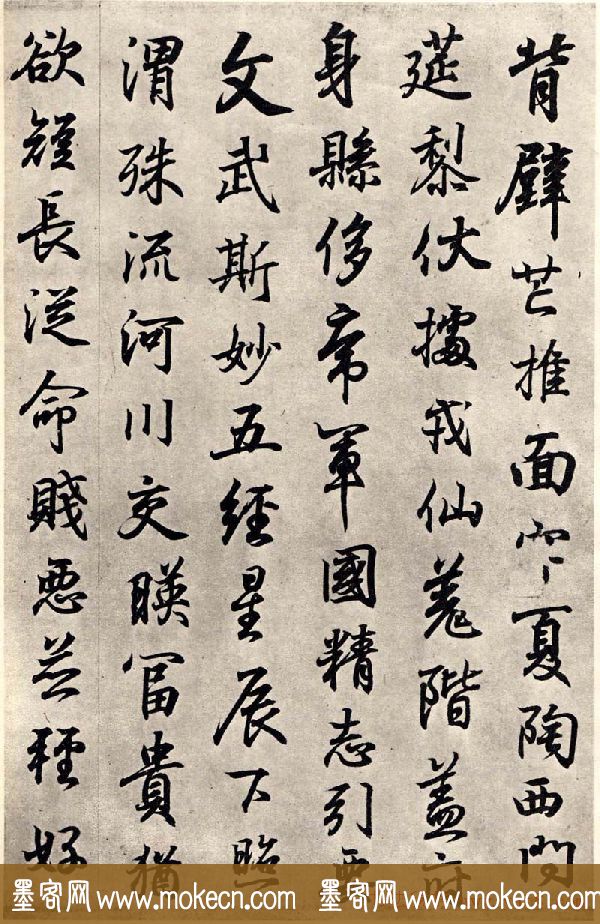 背壁芒推面夏陶西門
莚黎伏據戎仙羌階蓋
身縣侈帝軍國精志引
文武斯妙五經星辰下照
渭殊流河川交暎富貴猶
欲短長從命賤惡種好
墨客网 www.mokecn.com 墨客网 www.mokecn.com